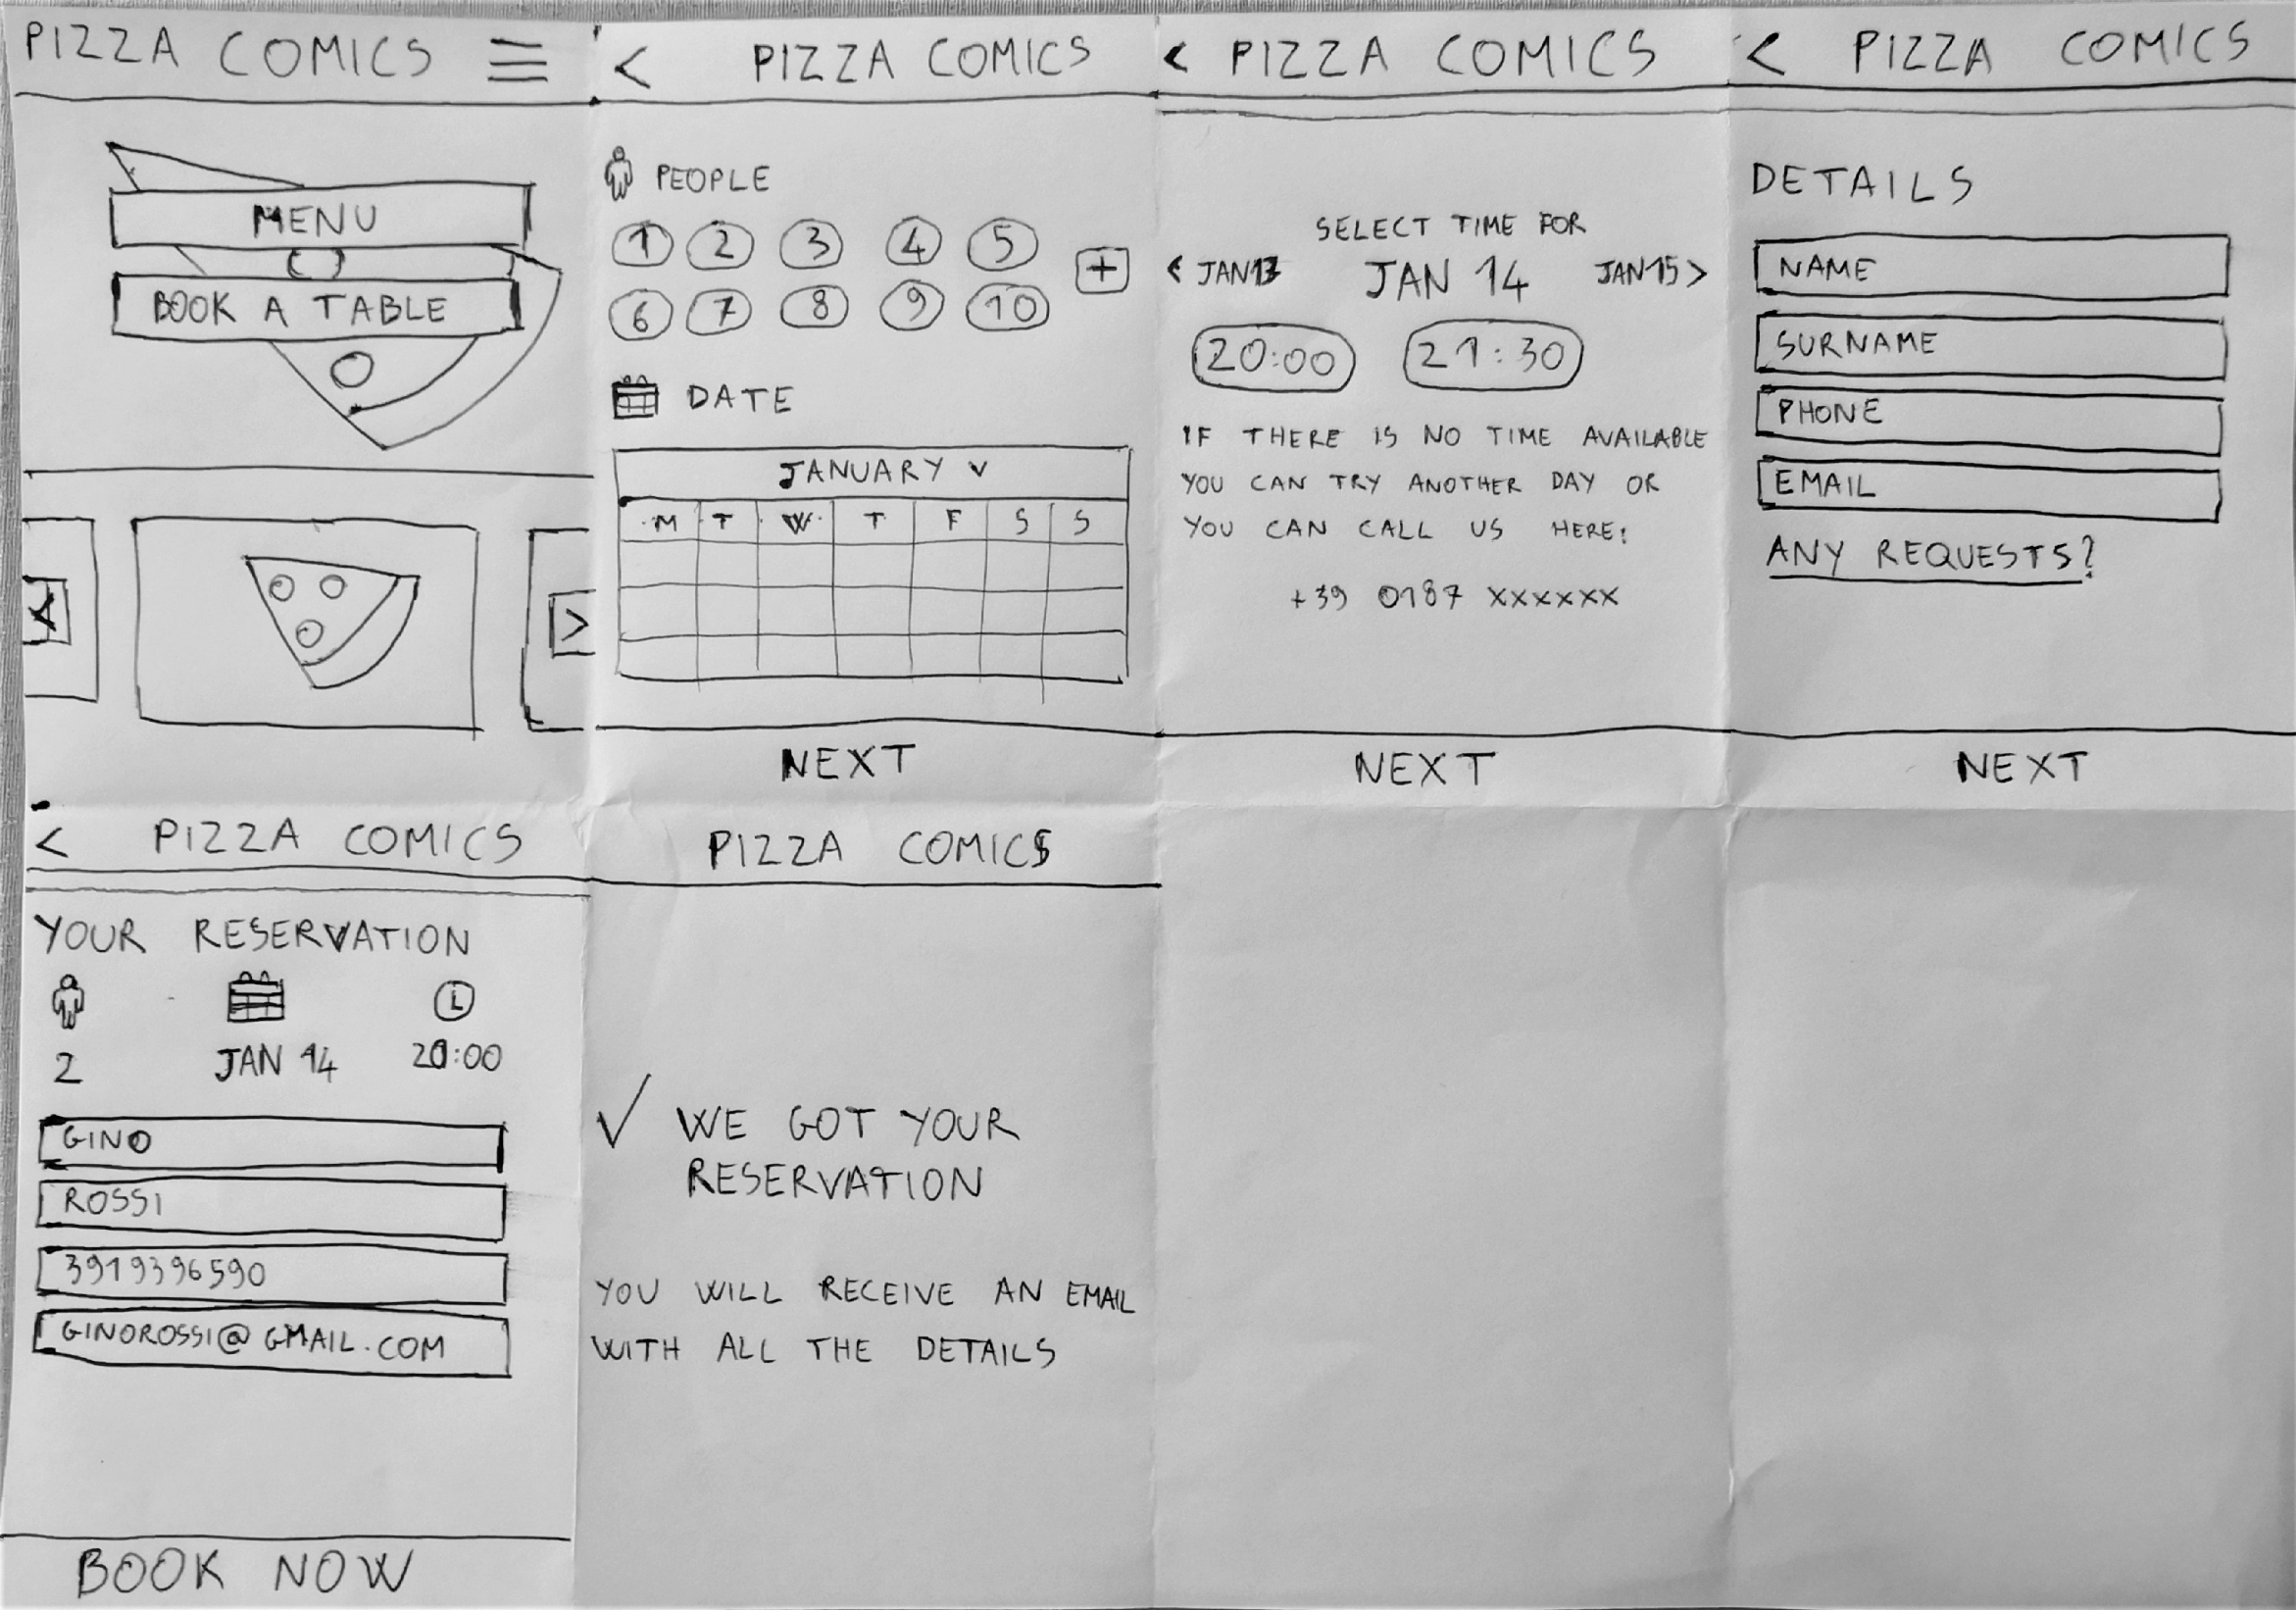 PIZZA COMICS
MENU
BOOK A TABLE
<
>
< PIZZA COMICS
PEOPLE
1 2 3 4 5
+
6 7 8 9 10
DATE
JANUARY v
M T W T F S S
NEXT
< PIZZA COMICS
SELECT TIME FOR
< JAN 13 JAN 14 JAN 15 >
20:00 21:30
IF THERE IS NO TIME AVAILABLE
YOU CAN TRY ANOTHER DAY OR
YOU CAN CALL US HERE:
+39 0187 XXXXXX
NEXT
< PIZZA COMICS
DETAILS
NAME
SURNAME
PHONE
EMAIL
ANY REQUESTS?
NEXT
< PIZZA COMICS
YOUR RESERVATION
2 JAN 14 20:00
GINO
ROSSI
3919396590
GINOROSSI@GMAIL.COM
BOOK NOW
PIZZA COMICS
✓ WE GOT YOUR
RESERVATION
YOU WILL RECEIVE AN EMAIL
WITH ALL THE DETAILS